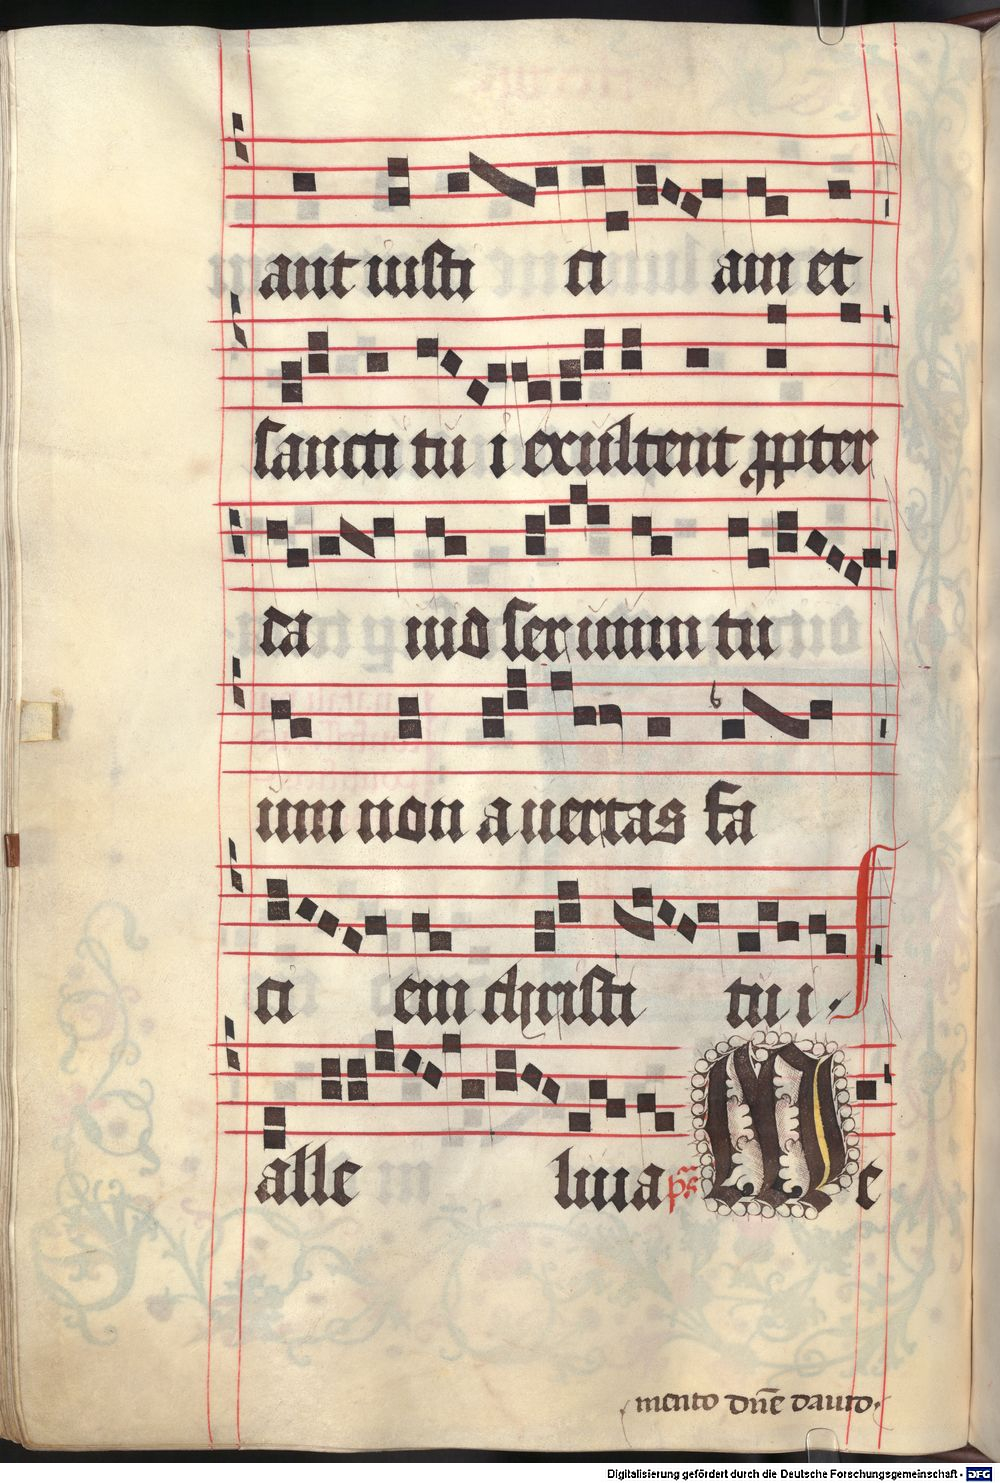 ant iusti ti am et
sancti tu i exultent ꝓpter
da uid seruum tu
um non auertas fa
ci em christi tu i.
alle luia ps Me
mento dn̄e dauid.
Digitalisierung gefördert durch die Deutsche Forschungsgemeinschaft - DFG